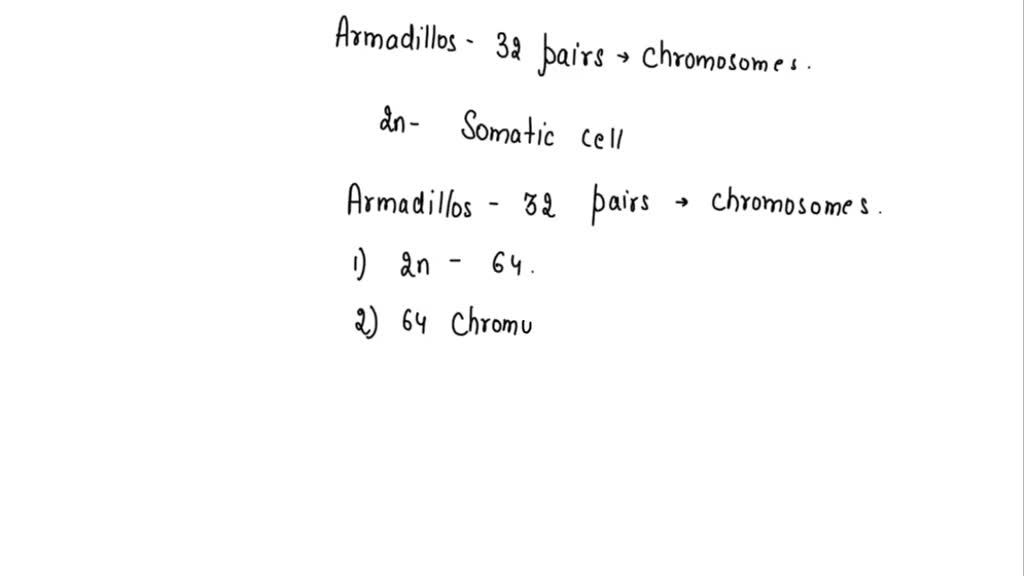 Armadillos - 32 pairs → chromosomes.
2n - Somatic cell
Armadillos - 32 pairs → chromosomes.
1) 2n - 64.
2) 64 Chromu